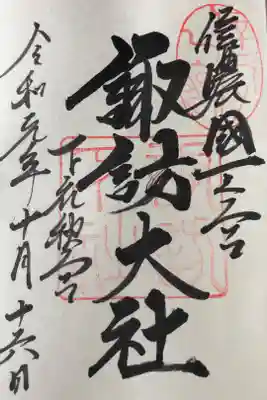 信濃國一之宮
諏訪大社
下社秋宮
令和元年十月十六日